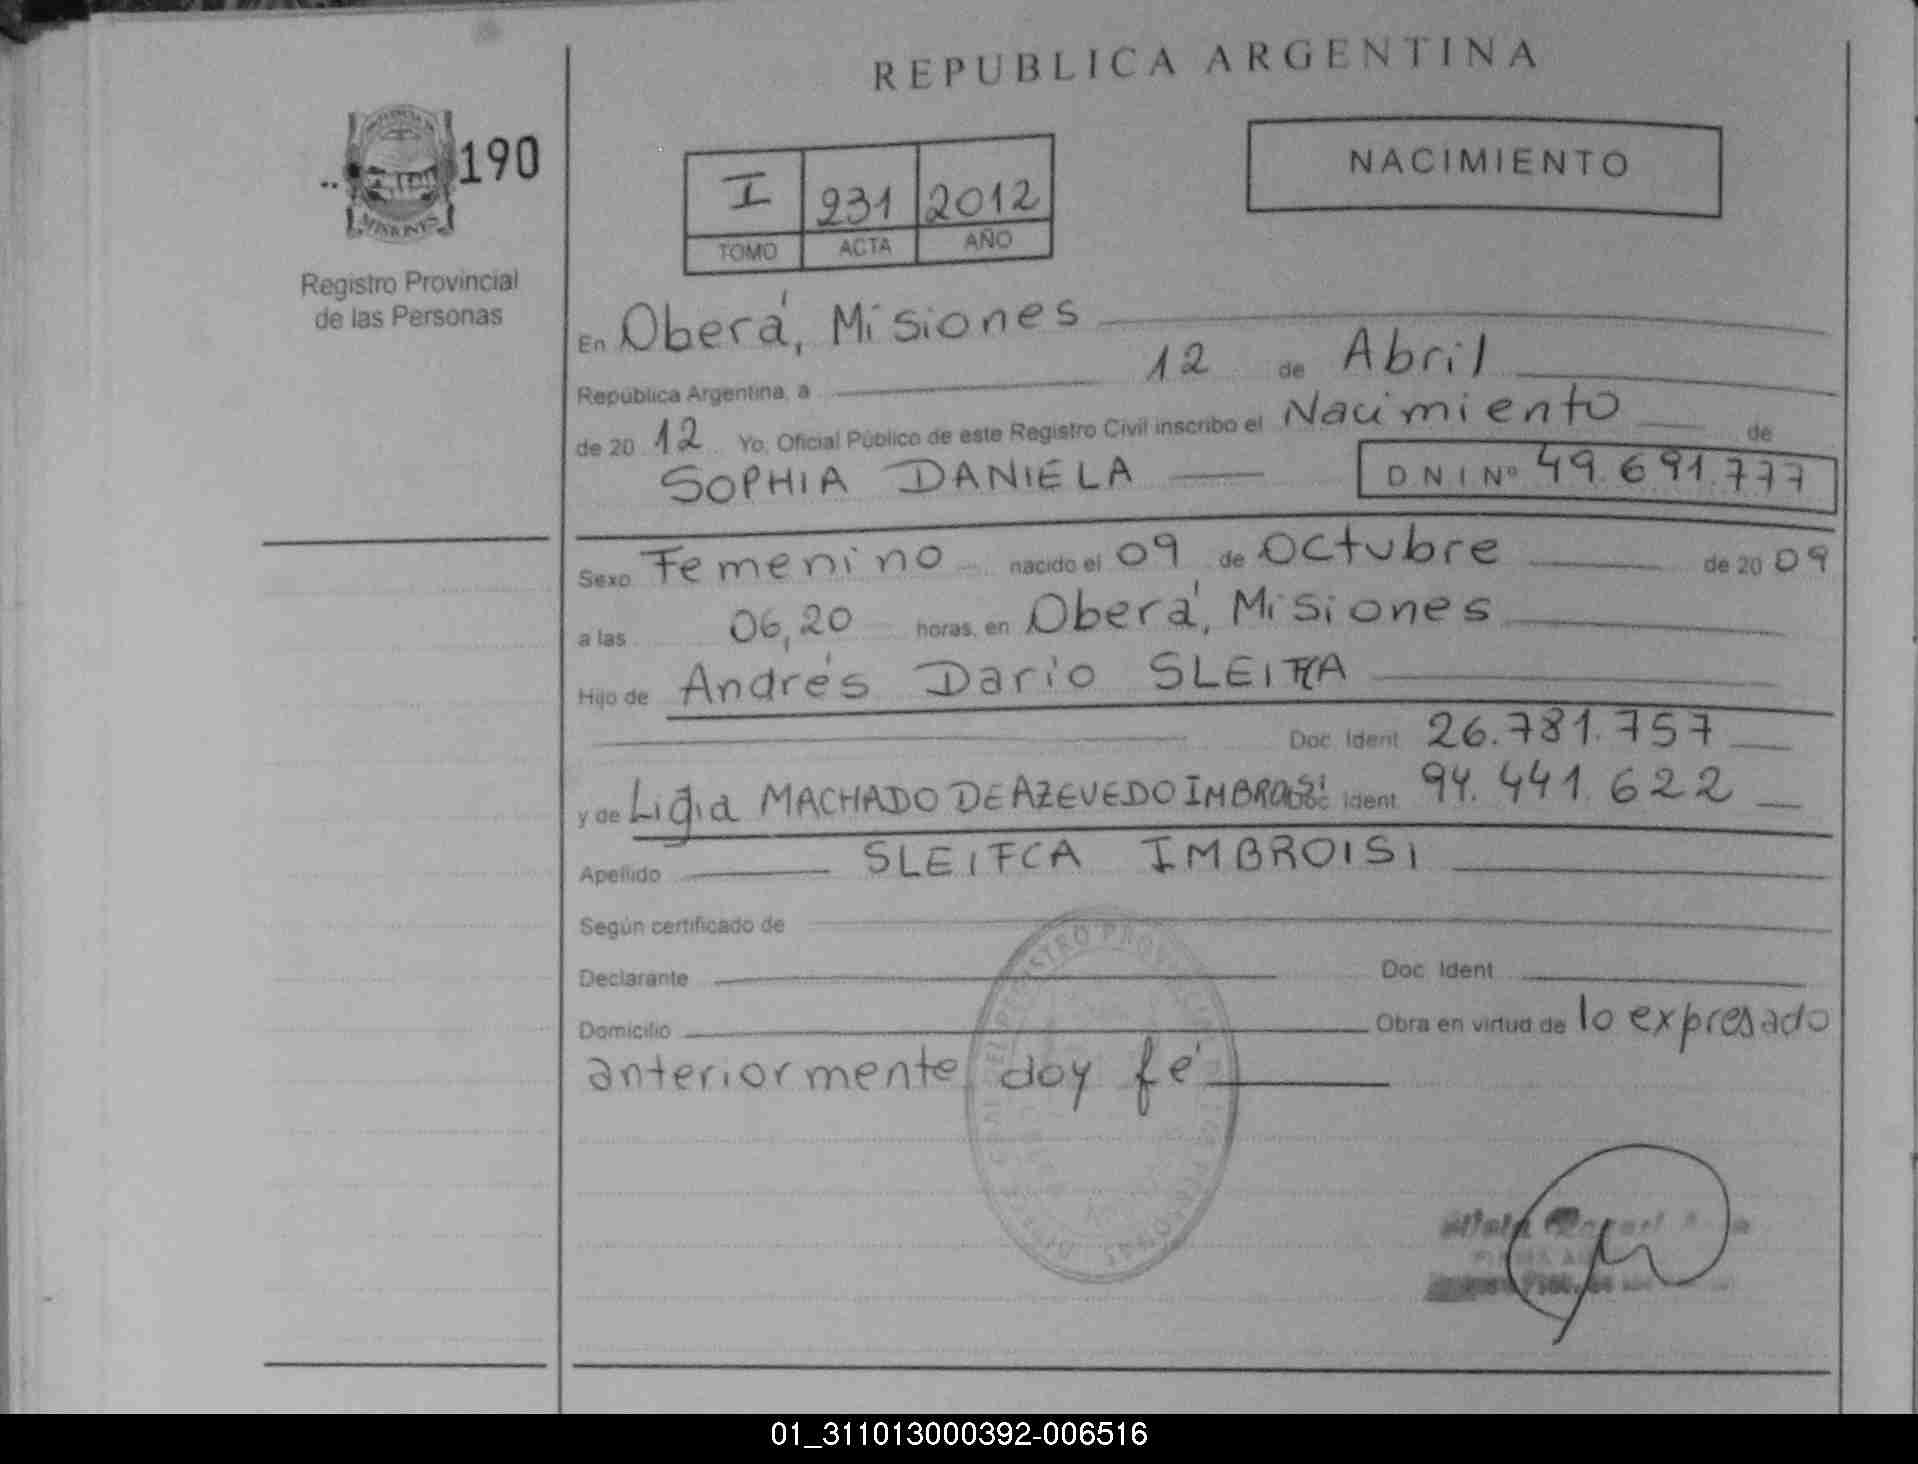 REPUBLICA ARGENTINA
190
MISIONES
Registro Provincial
de las Personas
I 231 2012
TOMO ACTA AÑO
NACIMIENTO
En Oberá, Misiones
República Argentina, a 12 de Abril
de 20 12 Yo, Oficial Público de este Registro Civil inscribo el Nacimiento de
SOPHIA DANIELA DNI Nº 49.691.777
Sexo Femenino nacido el 09 de Octubre de 20 09
a las 06,20 horas, en Oberá, Misiones
Hijo de Andrés Dario
Doc. Ident 26.781.757
y de Ligia MACHADO DE AZEVEDO IMBROISI Doc. Ident 94.441.622
Apellido SLEIFCA IMBROISI
Según certificado de
Declarante Doc. Ident
Domicilio Obra en virtud de lo expresado
anteriormente doy fé
01_311013000392-006516